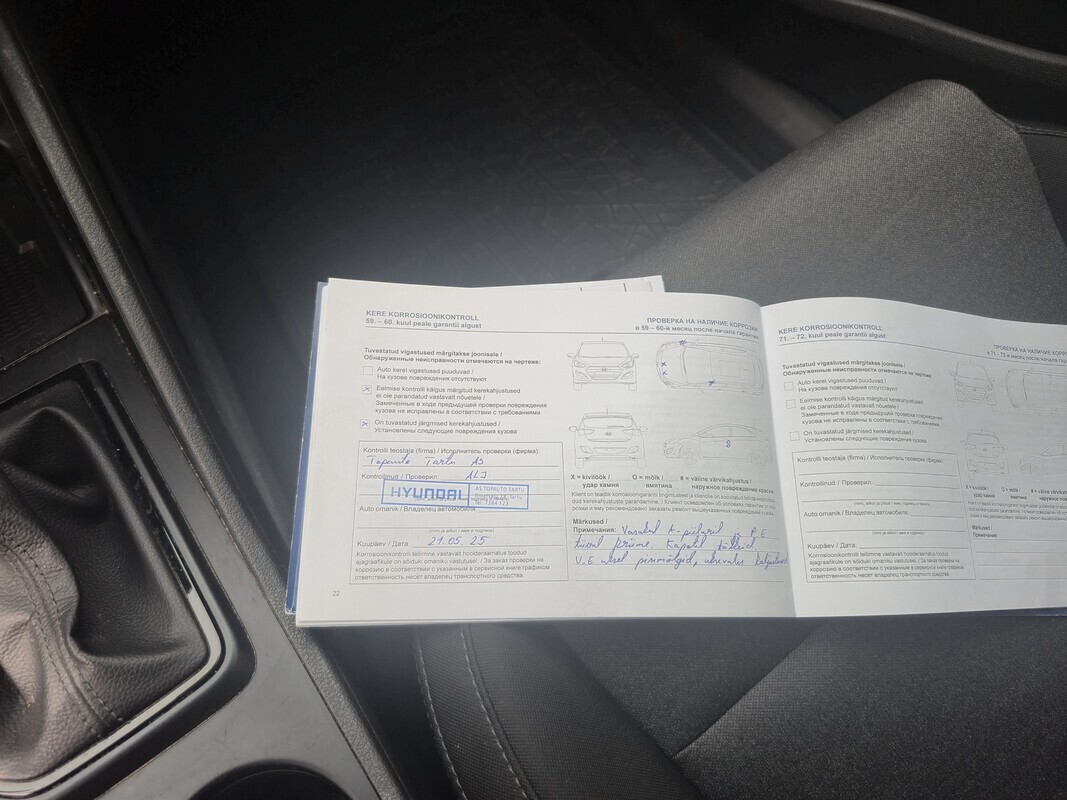 KERE KORROSIOONIKONTROLL
59. – 60. kuul peale garantii algust
ПРОВЕРКА НА НАЛИЧИЕ КОРРОЗИИ
в 59 – 60-й месяц после начала гарантии
Tuvastatud vigastused märgitakse joonisele /
Обнаруженные неисправности отмечаются на чертеже:
Auto kerel vigastused puuduvad /
На кузове повреждения отсутствуют
Eelmise kontrolli käigus märgitud kerekahjustused
ei ole parandatud vastavalt nõuetele /
Замеченные в ходе предыдущей проверки повреждения
кузова не исправлены в соответствии с требованиями
On tuvastatud järgmised kerekahjustused /
Установлены следующие повреждения кузова
Kontrolli teostaja (firma) / Исполнитель проверки (фирма):
Topauto Tartu AS
Kontrollinud / Проверил: ALJ
HYUNDAI AS TOPAUTO TARTU
Auto omanik / Владелец автомобиля:
Kuupäev / Дата: 21.05.25
Korrosioonikontrolli tellimine vastavalt hooldeRaamatus toodud
ajagraafikule on sõiduki omaniku vastutusel. / За заказ проверки на
коррозию в соответствии с указанным в сервисной книге графиком
ответственность несет владелец транспортного средства.
X = kivilöök /
удар камня
O = mõlk /
вмятина
# = väline värvikahjustus /
наружное повреждение краски
Märkused /
Примечания: Vasakul A-piilaril P.E
tiival kriime. Kapotil täkked
V.E uksel pisimõlgid,
22
KERE KORROSIOONIKONTROLL
71. – 72. kuul peale garantii algust
ПРОВЕРКА НА НАЛИЧИЕ КОРРО
в 71 - 72-й месяц после начала гара
Tuvastatud vigastused märgitakse joonisele /
Обнаруженные неисправности отмечаются на чертеже:
Auto kerel vigastused puuduvad /
На кузове повреждения отсутствуют
Eelmise kontrolli käigus märgitud kerekahjustused
ei ole parandatud vastavalt nõuetele /
Замеченные в ходе предыдущей проверки повреждения
кузова не исправлены в соответствии с требованиями
On tuvastatud järgmised kerekahjustused /
Установлены следующие повреждения кузова
Kontrolli teostaja (firma) / Исполнитель проверки (фирма):
Kontrollinud / Проверил:
Auto omanik / Владелец автомобиля:
Kuupäev / Дата:
Korrosioonikontrolli tellimine vastavalt hooderaamatus toodud
ajagraafikule on sõiduki omaniku vastutusel. / За заказ проверки на
коррозию в соответствии с указанным в сервисной книге графиком
ответственность несет владелец транспортного средства.
X = kivilöök /
удар камня
O = mõlk /
вмятина
Märkused /
Примечания: